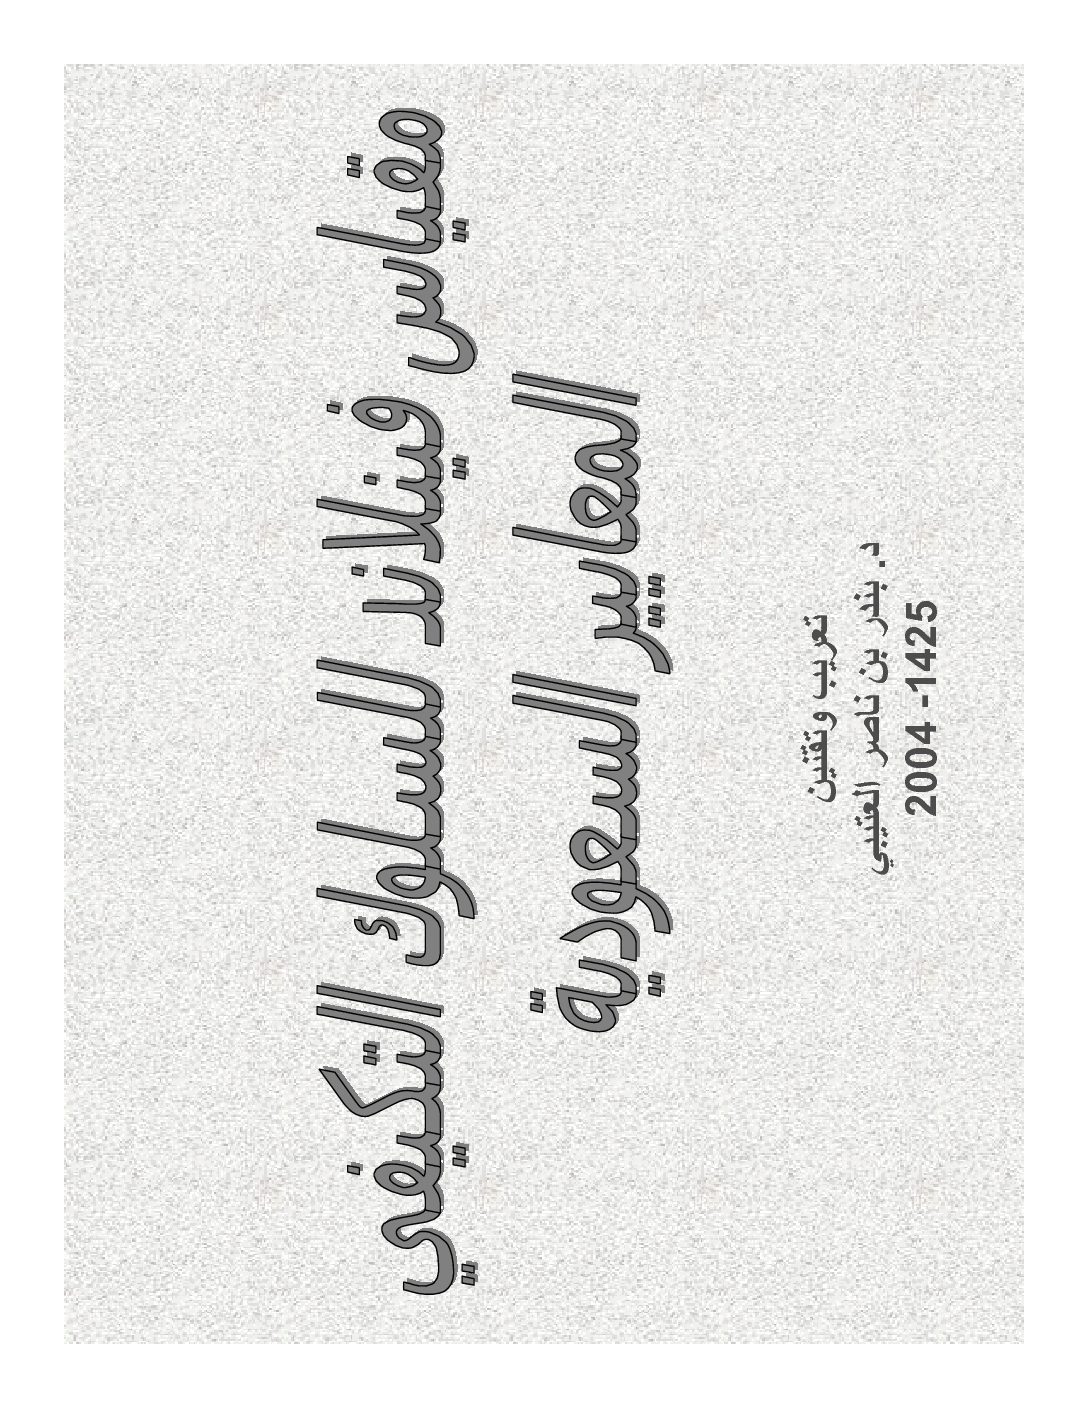 مقياس فينلاند للسلوك التكيفي
المعايير السعودية
تعريب وتقنين
د. بندر بن ناصر العتيبي
2004 -1425